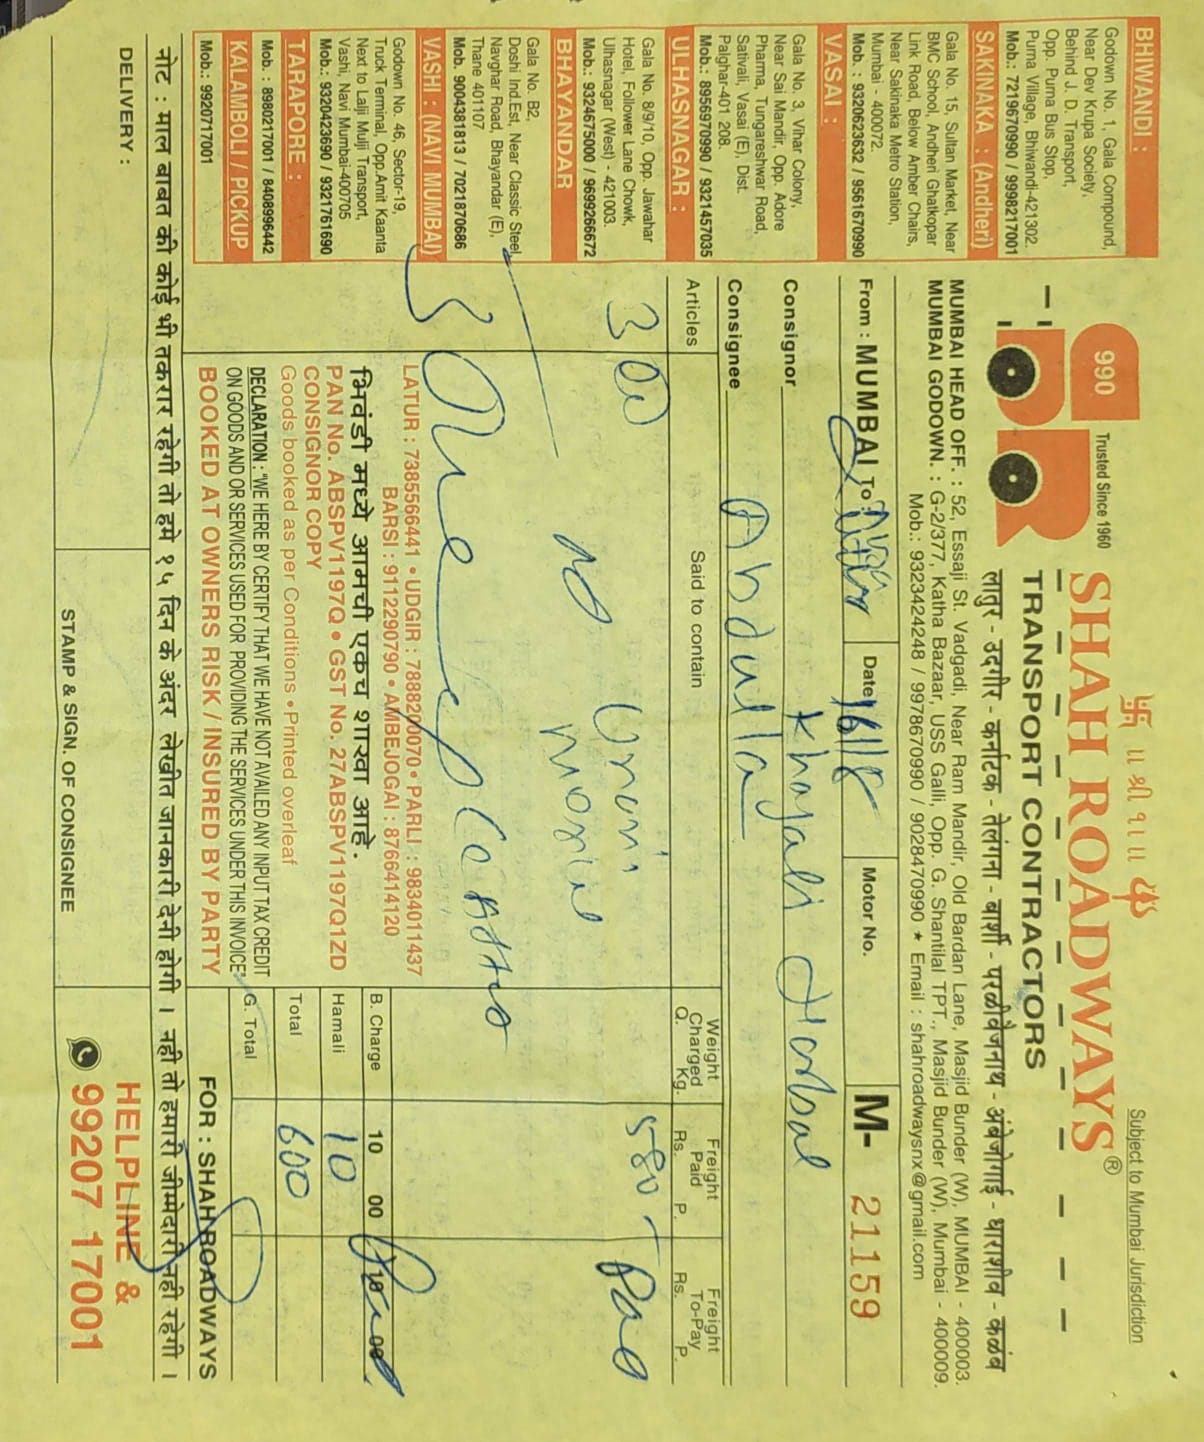 卐 ॥ श्री ९॥ ॥ ॐ
Subject to Mumbai Jurisdiction
990
Trusted Since 1960
SHAH ROADWAYS®
TRANSPORT CONTRACTORS
लातुर - उदगीर - कर्नाटक - तेलंगना - बार्शी - परळीवैजनाथ - अंबेजोगाई - धाराशीव - कळंब
MUMBAI HEAD OFF. : 52, Essaji St. Vadgadi, Near Ram Mandir, Old Bardan Lane, Masjid Bunder (W), MUMBAI - 400003.
MUMBAI GODOWN. : G-2/377, Katha Bazaar, USS Galli, Opp. G. Shantilal TPT., Masjid Bunder (W), Mumbai - 400009.
Mob.: 9323424248 / 9978670990 / 9028470990 * Email : shahroadwaysnx@gmail.com
BHIWANDI :
Godown No. 1, Gala Compound,
Near Dev Krupa Society,
Behind J. D. Transport,
Opp. Purna Bus Stop,
Purna Village, Bhiwandi-421302.
Mob.: 7219670990 / 9998217001
SAKINAKA : (Andheri)
Gala No. 15, Sultan Market, Near
BMC School, Andheri Ghatkopar
Link Road, Below Amber Chairs,
Near Sakinaka Metro Station,
Mumbai - 400072.
Mob. : 9320623632 / 9561670990
VASAI :
Gala No. 3, Vihar Colony,
Near Sai Mandir, Opp. Adore
Pharma, Tungareshwar Road,
Sativali, Vasai (E), Dist.
Palghar-401 208.
Mob.: 8956970990 / 9321457035
ULHASNAGAR :
Gala No. 8/9/10, Opp. Jawahar
Hotel, Follower Lane Chowk,
Ulhasnagar (West) - 421003.
Mob.: 9324675000 / 9699266672
BHAYANDAR
Gala No. B2,
Doshi Ind.Est. Near Classic Steel
Navghar Road, Bhayandar (E),
Thane 401107
Mob. 9004381813 / 7021870686
VASHI : (NAVI MUMBAI)
Godown No. 46, Sector-19,
Truck Terminal, Opp.Amit Kaanta
Next to Lalji Mulji Transport,
Vashi, Navi Mumbai-400705
Mob.: 9320423690 / 9321761690
TARAPORE :
Mob. : 8980217001 / 8408996442
KALAMBOLI / PICKUP
Mob.: 9920717001
From : MUMBAI To : Date 16/18 Motor No. M- 21159
Consignor Khayali Harbal
Consignee Abdulla
Articles Said to contain Weight Charged Q. Kg. Freight Paid Rs. P. Freight To-Pay Rs. P.
300 Unani 580 - Paid
no
3 One
LATUR : 7385566441 • UDGIR : 7888200070 • PARLI : 9834011437
BARSI : 9112290790 • AMBEJOGAI : 8766414120
भिवंडी मध्ये आमची एकच शाखा आहे.
PAN No. ABSPV1197Q • GST No. 27ABSPV1197Q1ZD
CONSIGNOR COPY
Goods booked as per Conditions • Printed overleaf
DECLARATION : "WE HERE BY CERTIFY THAT WE HAVE NOT AVAILED ANY INPUT TAX CREDIT
ON GOODS AND OR SERVICES USED FOR PROVIDING THE SERVICES UNDER THIS INVOICE"
BOOKED AT OWNERS RISK / INSURED BY PARTY
B. Charge 10 00 10 00
Hamali 10
Total 600
G. Total
FOR : SHAH ROADWAYS
नोट : माल बाबत की कोई भी तकरार रहेगी तो हमे १५ दिन के अंदर लेखीत जानकारी देनी होगी । नही तो हमारी जीम्मेदारी नही रहेगी ।
DELIVERY :
STAMP & SIGN. OF CONSIGNEE
HELPLINE &
99207 17001